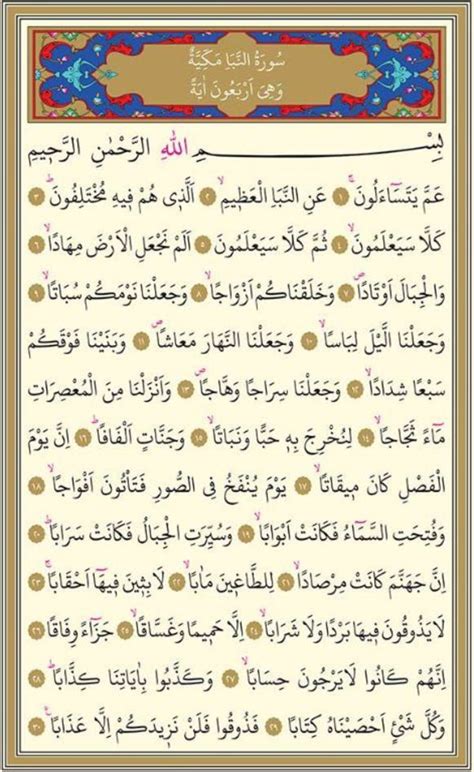 سُورَةُ النَّبَأِ مَكِّيَّةٌ
وَهِيَ اَرْبَعُونَ اٰيَةً
بِسْمِ اللّٰهِ الرَّحْمٰنِ الرَّحٖيمِ
عَمَّ يَتَسَٓاءَلُونَۚ ١ عَنِ النَّبَأِ الْعَظٖيمِۙ ٢ اَلَّذٖى هُمْ فٖيهِ مُخْتَلِفُونَۜ ٣
كَلَّا سَيَعْلَمُونَۙ ٤ ثُمَّ كَلَّا سَيَعْلَمُونَ ٥ اَلَمْ نَجْعَلِ الْاَرْضَ مِهَادًاۙ ٦
وَالْجِبَالَ اَوْتَادًاۖ ٧ وَخَلَقْنَاكُمْ اَزْوَاجًاۙ ٨ وَجَعَلْنَا نَوْمَكُمْ سُبَاتًاۙ ٩
وَجَعَلْنَا الَّيْلَ لِبَاسًاۙ ١٠ وَجَعَلْنَا النَّهَارَ مَعَاشًاۖ ١١ وَبَنَيْنَا فَوْقَكُمْ
سَبْعًا شِدَادًاۙ ١٢ وَجَعَلْنَا سِرَاجًا وَهَّاجًاۖ ١٣ وَاَنْزَلْنَا مِنَ الْمُعْصِرَاتِ
مَٓاءً ثَجَّاجًاۙ ١٤ لِنُخْرِجَ بِهٖ حَبًّا وَنَبَاتًاۙ ١٥ وَجَنَّاتٍ اَلْفَافًاۜ ١٦ اِنَّ يَوْمَ
الْفَصْلِ كَانَ مٖيقَاتًاۙ ١٧ يَوْمَ يُنْفَخُ فِى الصُّورِ فَتَأْتُونَ اَفْوَاجًاۙ ١٨
وَفُتِحَتِ السَّمَٓاءُ فَكَانَتْ اَبْوَابًاۙ ١٩ وَسُيِّرَتِ الْجِبَالُ فَكَانَتْ سَرَابًاۜ ٢٠
اِنَّ جَهَنَّمَ كَانَتْ مِرْصَادًاۙ ٢١ لِلطَّاغٖينَ مَاٰبًاۙ ٢٢ لَابِثٖينَ فٖيهَٓا اَحْقَابًاۚ ٢٣
لَا يَذُوقُونَ فٖيهَا بَرْدًا وَلَا شَرَابًاۙ ٢٤ اِلَّا حَمٖيمًا وَغَسَّاقًاۙ ٢٥ جَزَٓاءً وِفَاقًاۜ ٢٦
اِنَّهُمْ كَانُوا لَا يَرْجُونَ حِسَابًاۙ ٢٧ وَكَذَّبُوا بِاٰيَاتِنَا كِذَّابًاۜ ٢٨
وَكُلَّ شَىْءٍ اَحْصَيْنَاهُ كِتَابًاۙ ٢٩ فَذُوقُوا فَلَنْ نَزٖيدَكُمْ اِلَّا عَذَابًاۚ ٣٠